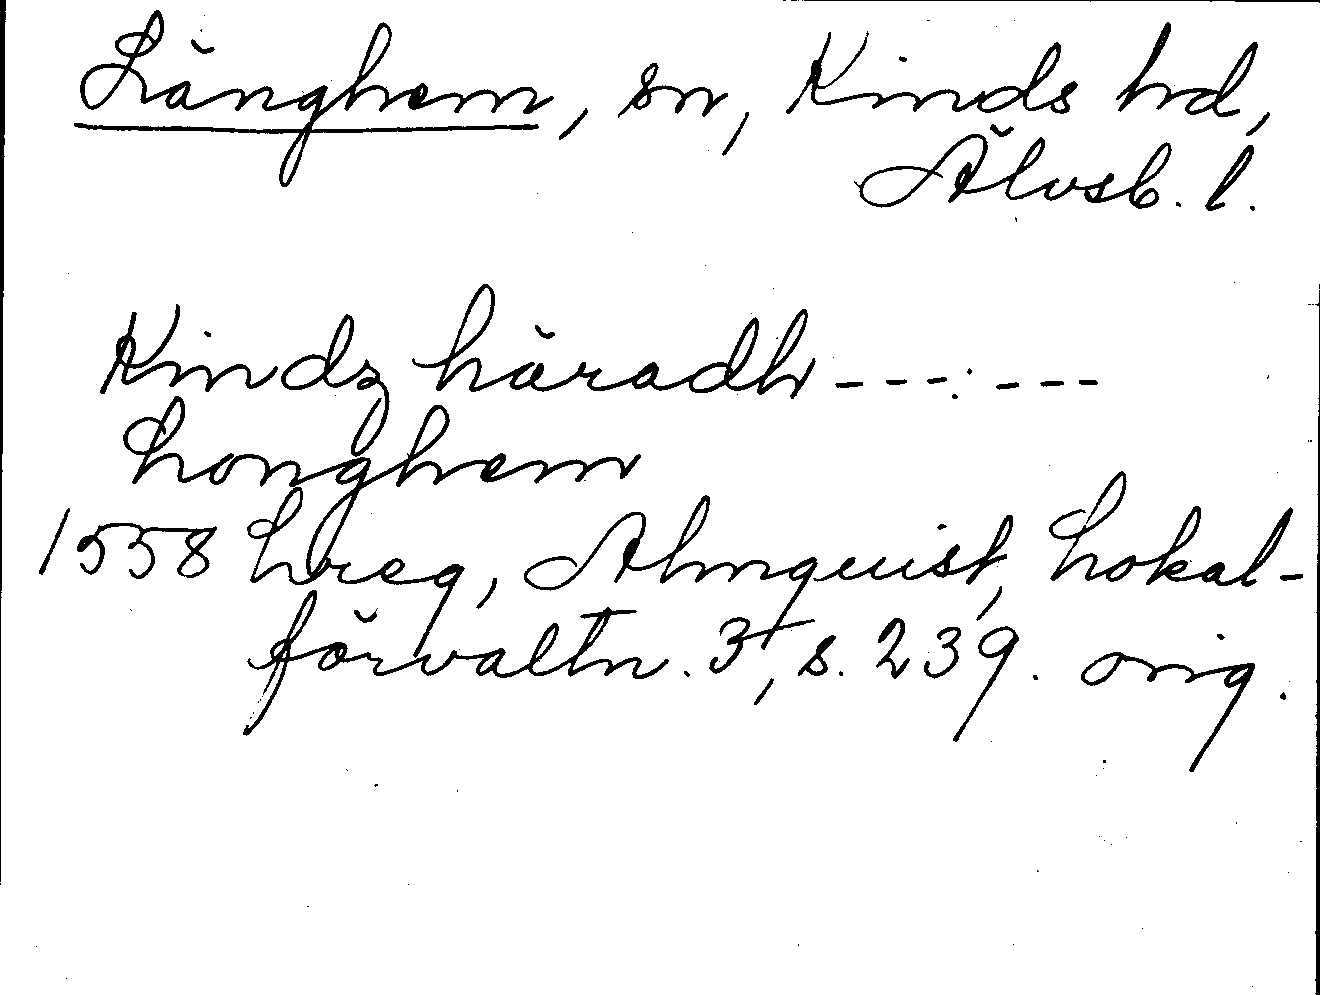 Länghem, sn, Kinds hd,
Älvsb. l.
Kindz häradh --- . ---
Longhem
1558 Lreg, Almquist, Lokal-
förvaltn. 3, s. 239. orig.